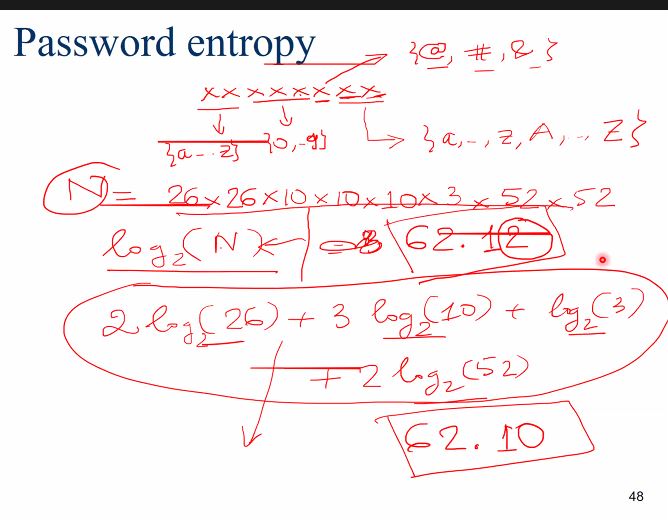 Password entropy
{@, #, &}
xx xxx x xx
{a...z} {0,-9} {a,.., z, A, .., Z}
N = 26 x 26 x 10 x 10 x 10 x 3 x 52 x 52
log₂(N) ← 62.12
2 log₂(26) + 3 log₂(10) + log₂(3)
+ 2 log₂(52)
62.10
48